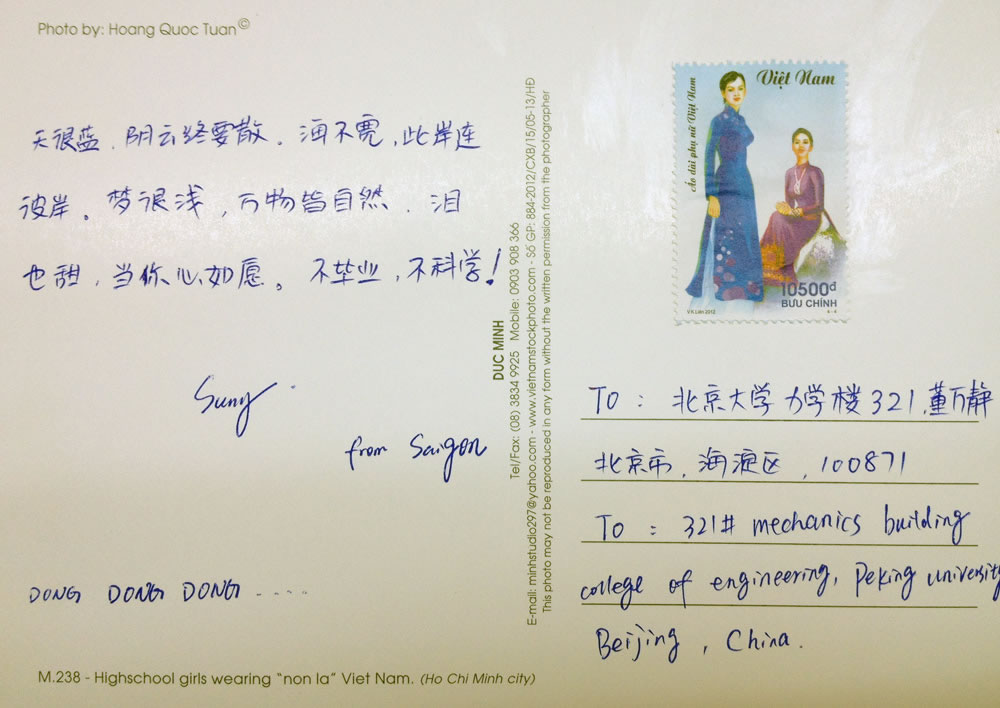 Photo by: Hoang Quoc Tuan©
天很蓝，阴云终要散。海不宽，此岸连
彼岸。梦很浅，万物皆自然．泪
也甜，当你心如愿。不毕业，不科学！
Sung
from Saigon
DONG DONG DONG ....
M.238 - Highschool girls wearing "non la" Viet Nam. (Ho Chi Minh city)
DUC MINH
Tel/Fax: (08) 3834 9925 Mobile: 0903 908 366
E-mail: minhstudio297@yahoo.com - www.vietnamstockphoto.com - Số GP: 884-2012/CXB/15/05-13/HĐ
This photo may not be reproduced in any form without the written permission from the photographer
Việt Nam
Áo dài phụ nữ Việt Nam
10500đ
BƯU CHÍNH
V.K Liên 2012
4-4
To : 北京大学力学楼321,董万静
北京市，海淀区，100871
To : 321# mechanics building
college of engineering, Peking university
Beijing , China.